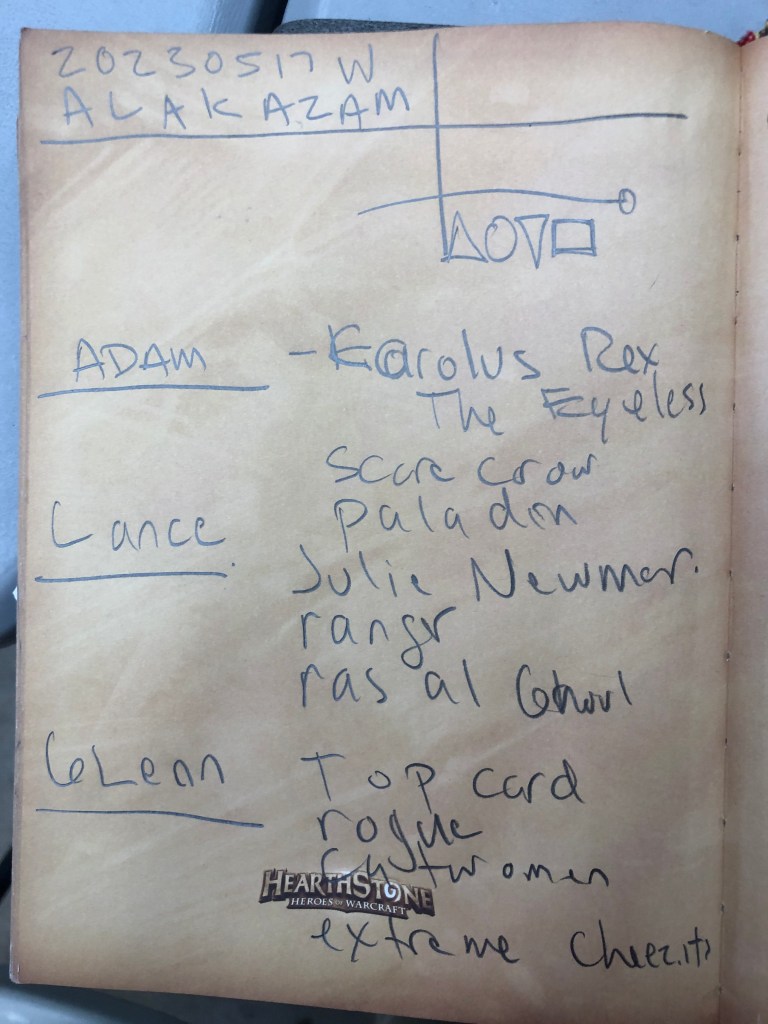 20230517 W
ALAKAZAM
ADAM - Karolus Rex
The Eyeless
Scare crow
Lance paladin
Julie Newmar.
rangr
ras al Ghoul
GLenn Top card
rogue
Catwomen
HEARTHSTONE
HEROES OF WARCRAFT
extreme Cheez.its